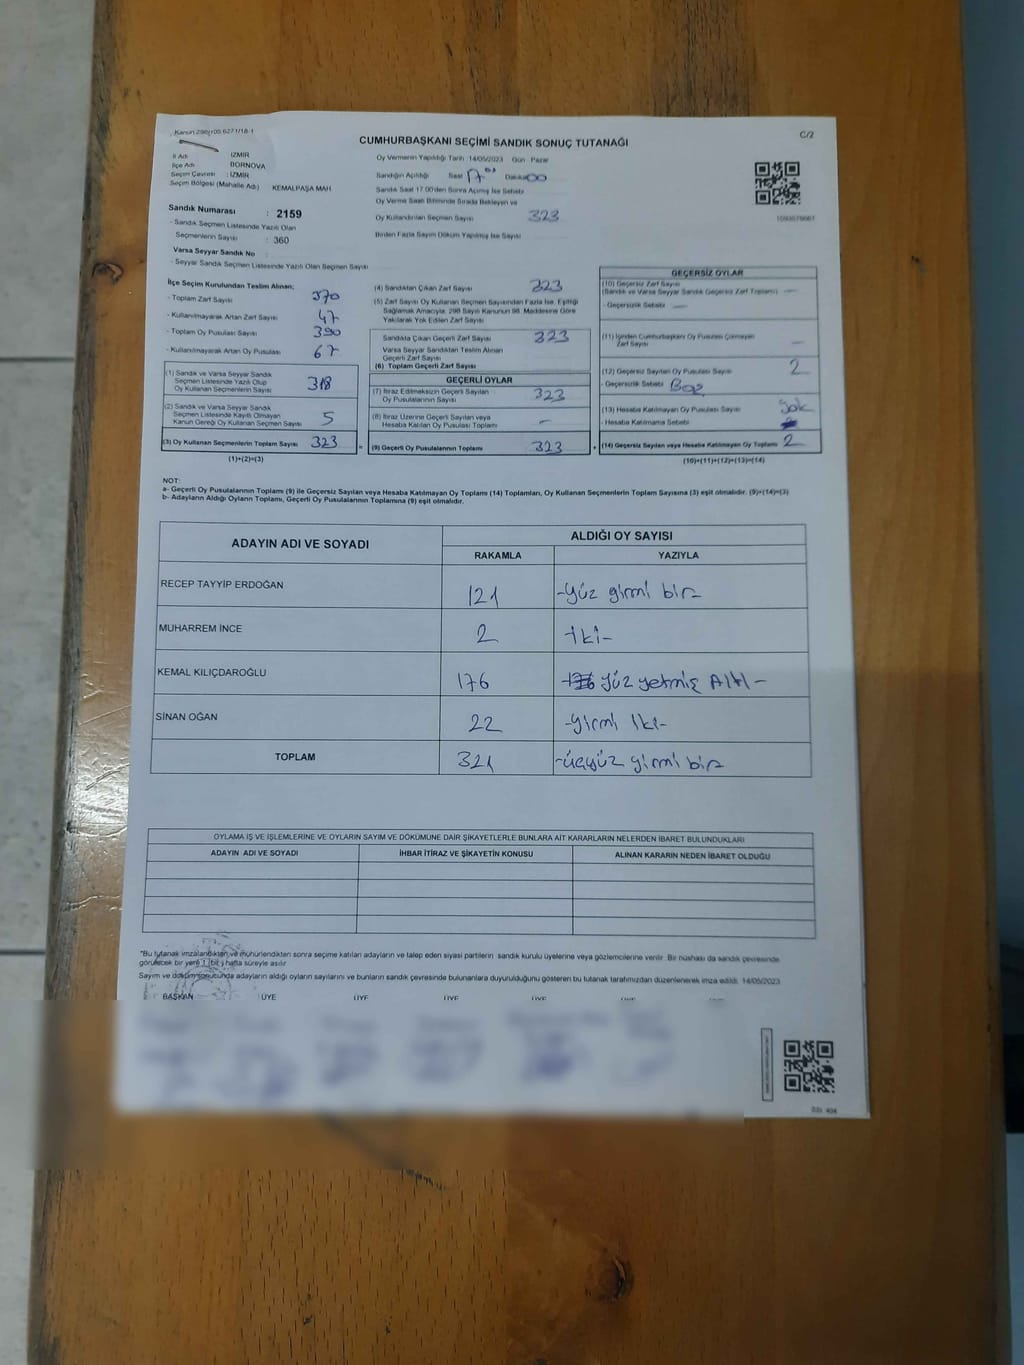 Kanun 298/105 6271/18-1
C/2
CUMHURBAŞKANI SEÇİMİ SANDIK SONUÇ TUTANAĞI
İl Adı : İZMİR
İlçe Adı : BORNOVA
Seçim Çevresi : İZMİR
Seçim Bölgesi (Mahalle Adı) KEMALPAŞA MAH.
Sandık Numarası : 2159
- Sandık Seçmen Listesinde Yazılı Olan
Seçmenlerin Sayısı : 360
Varsa Seyyar Sandık No :
- Seyyar Sandık Seçmen Listesinde Yazılı Olan Seçmen Sayısı
Oy Vermenin Yapıldığı Tarih 14/05/2023 Gün Pazar
Sandığın Açıldığı Saat 17 00 Dakika 00
Sandık Saat 17.00'den Sonra Açılmış İse Sebebi
Oy Verme Saati Bitiminde Sırada Bekleyen ve
Oy Kullandırılan Seçmen Sayısı 323
Birden Fazla Sayım Döküm Yapılmış İse Sayısı
İlçe Seçim Kurulundan Teslim Alınan;
- Toplam Zarf Sayısı 370
- Kullanılmayarak Artan Zarf Sayısı 47
- Toplam Oy Pusulası Sayısı 390
- Kullanılmayarak Artan Oy Pusulası 67
(1) Sandık ve Varsa Seyyar Sandık
Seçmen Listesinde Yazılı Olup
Oy Kullanan Seçmenlerin Sayısı 318
(2) Sandık ve Varsa Seyyar Sandık
Seçmen Listesinde Kayıtlı Olmayan
Kanun Gereği Oy Kullanan Seçmen Sayısı 5
(3) Oy Kullanan Seçmenlerin Toplam Sayısı 323
(1)+(2)=(3)
(4) Sandıktan Çıkan Zarf Sayısı 323
(5) Zarf Sayısı Oy Kullanan Seçmen Sayısından Fazla İse, Eşitliği
Sağlamak Amacıyla, 298 Sayılı Kanunun 98. Maddesine Göre
Yakılarak Yok Edilen Zarf Sayısı
Sandıkta Çıkan Geçerli Zarf Sayısı 323
Varsa Seyyar Sandıktan Teslim Alınan
Geçerli Zarf Sayısı
(6) Toplam Geçerli Zarf Sayısı
GEÇERLİ OYLAR
(7) İtiraz Edilmeksizin Geçerli Sayılan
Oy Pusulalarının Sayısı 323
(8) İtiraz Üzerine Geçerli Sayılan veya
Hesaba Katılan Oy Pusulası Toplamı -
= (9) Geçerli Oy Pusulalarının Toplamı 323 +
GEÇERSİZ OYLAR
(10) Geçersiz Zarf Sayısı
(Sandık ve Varsa Seyyar Sandık Geçersiz Zarf Toplamı) -
- Geçersizlik Sebebi -
(11) İçinden Cumhurbaşkanı Oy Pusulası Çıkmayan
Zarf Sayısı -
(12) Geçersiz Sayılan Oy Pusulası Sayısı 2
- Geçersizlik Sebebi Boş
(13) Hesaba Katılmayan Oy Pusulası Sayısı yok
- Hesaba Katılmama Sebebi
(14) Geçersiz Sayılan veya Hesaba Katılmayan Oy Toplamı 2
(10)+(11)+(12)+(13)=(14)
NOT:
a- Geçerli Oy Pusulalarının Toplamı (9) ile Geçersiz Sayılan veya Hesaba Katılmayan Oy Toplamı (14) Toplamları, Oy Kullanan Seçmenlerin Toplam Sayısına (3) eşit olmalıdır. (9)+(14)=(3)
b- Adayların Aldığı Oyların Toplamı, Geçerli Oy Pusulalarının Toplamına (9) eşit olmalıdır.
ADAYIN ADI VE SOYADI ALDIĞI OY SAYISI
RAKAMLA YAZIYLA
RECEP TAYYİP ERDOĞAN 121 -yüz yirmi bir-
MUHARREM İNCE 2 -iki-
KEMAL KILIÇDAROĞLU 176 yüz yetmiş Altı-
SİNAN OĞAN 22 -yirmi iki-
TOPLAM 321 -üçyüz yirmi bir
OYLAMA İŞ VE İŞLEMLERİNE VE OYLARIN SAYIM VE DÖKÜMÜNE DAİR ŞİKAYETLERLE BUNLARA AİT KARARLARIN NELERDEN İBARET BULUNDUKLARI
ADAYIN ADI VE SOYADI İHBAR İTİRAZ VE ŞİKAYETİN KONUSU ALINAN KARARIN NEDEN İBARET OLDUĞU
*Bu tutanak imzalandıktan ve mühürlendikten sonra seçime katılan adayların ve talep eden siyasi partilerin sandık kurulu üyelerine veya gözlemcilerine verilir. Bir nüshası da sandık çevresinde
görülecek bir yere 1 (bir) hafta süreyle asılır
Sayım ve döküm sonucunda adayların aldığı oyların sayılarını ve bunların sandık çevresinde bulunanlara duyurulduğunu gösteren bu tutanak tarafımızdan düzenlenerek imza edildi. 14/05/2023
BAŞKAN ÜYE ÜYE ÜYE ÜYE ÜYE